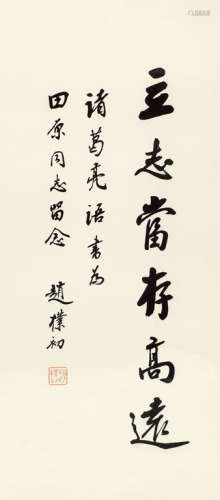 立志當存高遠
諸葛亮語書為
田原同志留念
趙樸初